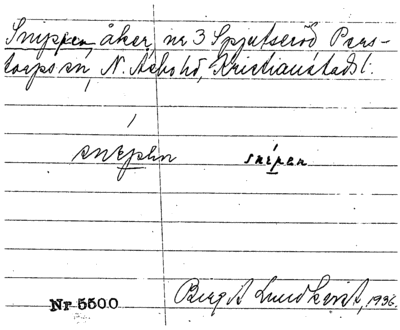 Snippen, åker, nr 3 Spjutseröd Pers-
torps sn, N. Åsbo hd, Kristianstads l.
snipen
Nr 5500
Birgit Lundkvist, 1936.